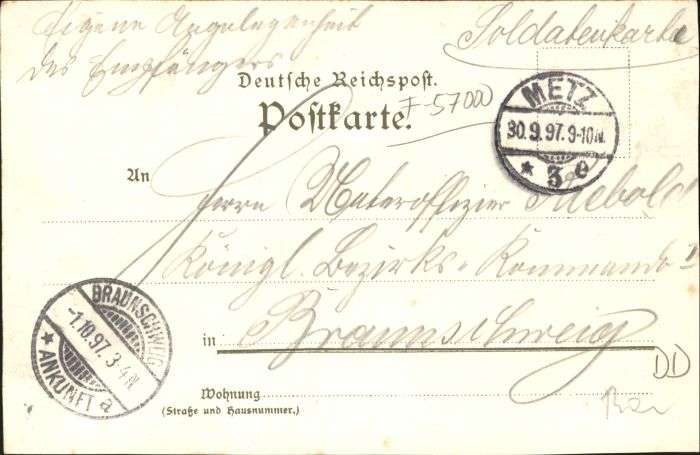 Eigene Angelegenheit
des Empfängers
Soldatenkarte
Deutsche Reichspost.
Postkarte.
F-57000
METZ
30.9.97.9-10N.
* 3 e
An
Herrn Unteroffizier
Königl. Bezirks-Kommando
in Braunschweig
BRAUNSCHWEIG
-1.10.97.3-4N
* ANKUNFT a
Wohnung
(Straße und Hausnummer.)
DD